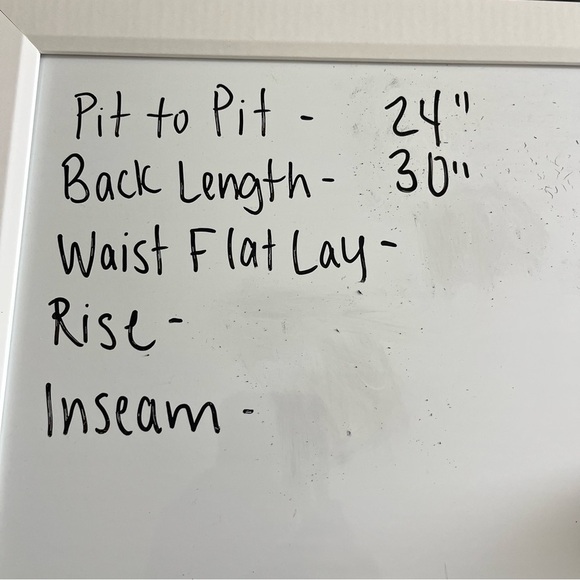 Pit to Pit - 24"
Back Length - 30"
Waist Flat Lay -
Rise -
Inseam -